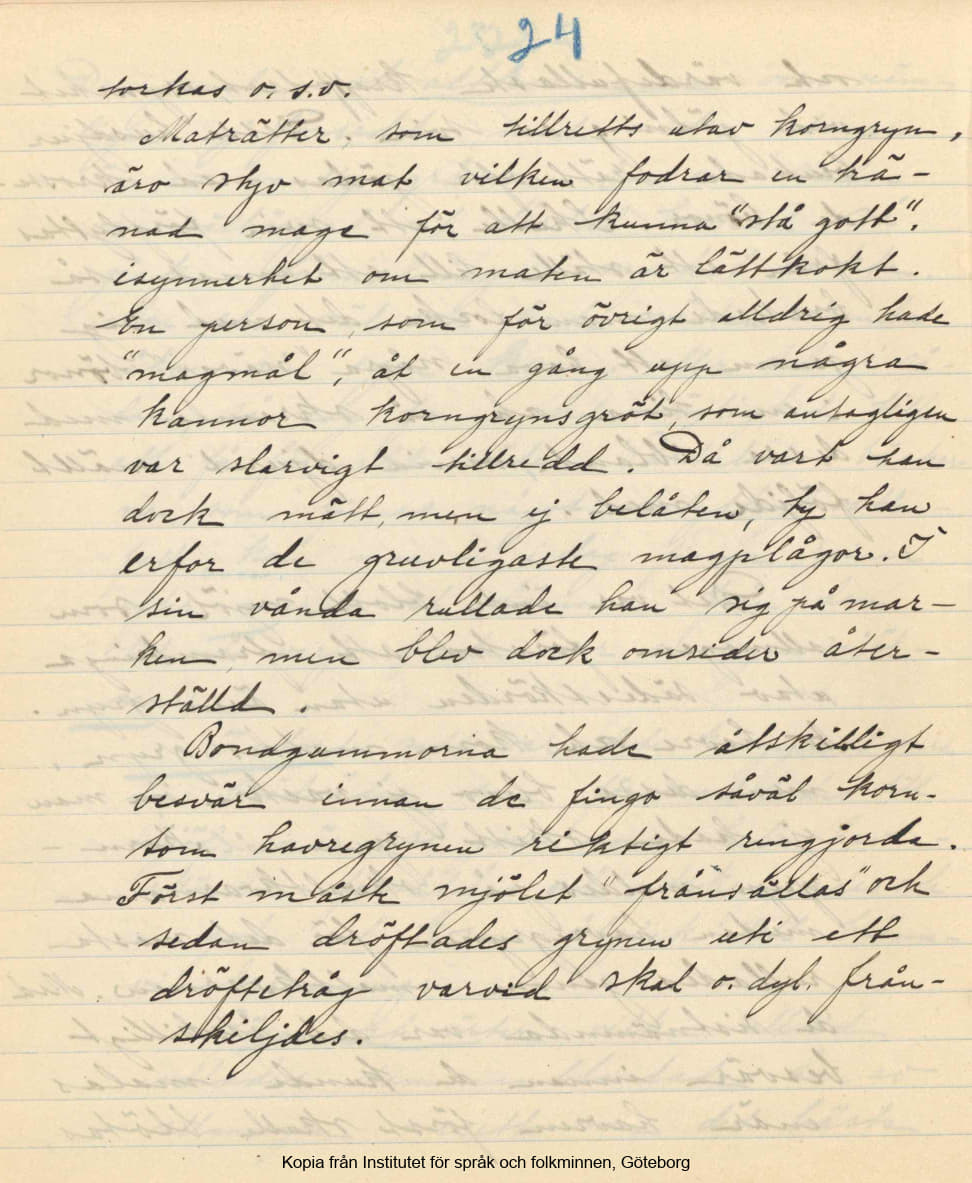 24
torkas o. s.v.
Maträtter, som tillretts utav korngryn,
äro styv mat vilken fodrar en trä-
nad mage för att kunna "stå gott".
isynnerhet om maten är lättkokt.
En person, som för övrigt alldrig hade
"magmål", åt en gång upp några
kannor korngrynsgröt, som antagligen
var slarvigt tillredd. Då vart han
dock mätt, men ej belåten, ty han
erfor de gruvligaste magplågor. I
sin vånda rullade han sig på mar-
ken, men blev dock omsider åter-
ställd.
Bondgummorna hade åtskilligt
besvär innan de fingo såväl korn-
som havregrynen riktigt rengjorda.
Först måste mjölet "frånsållas" och
sedan dröftades grynen uti ett
dröftetråg varvid skal o. dyl. från-
skiljdes.
Kopia från Institutet för språk och folkminnen, Göteborg